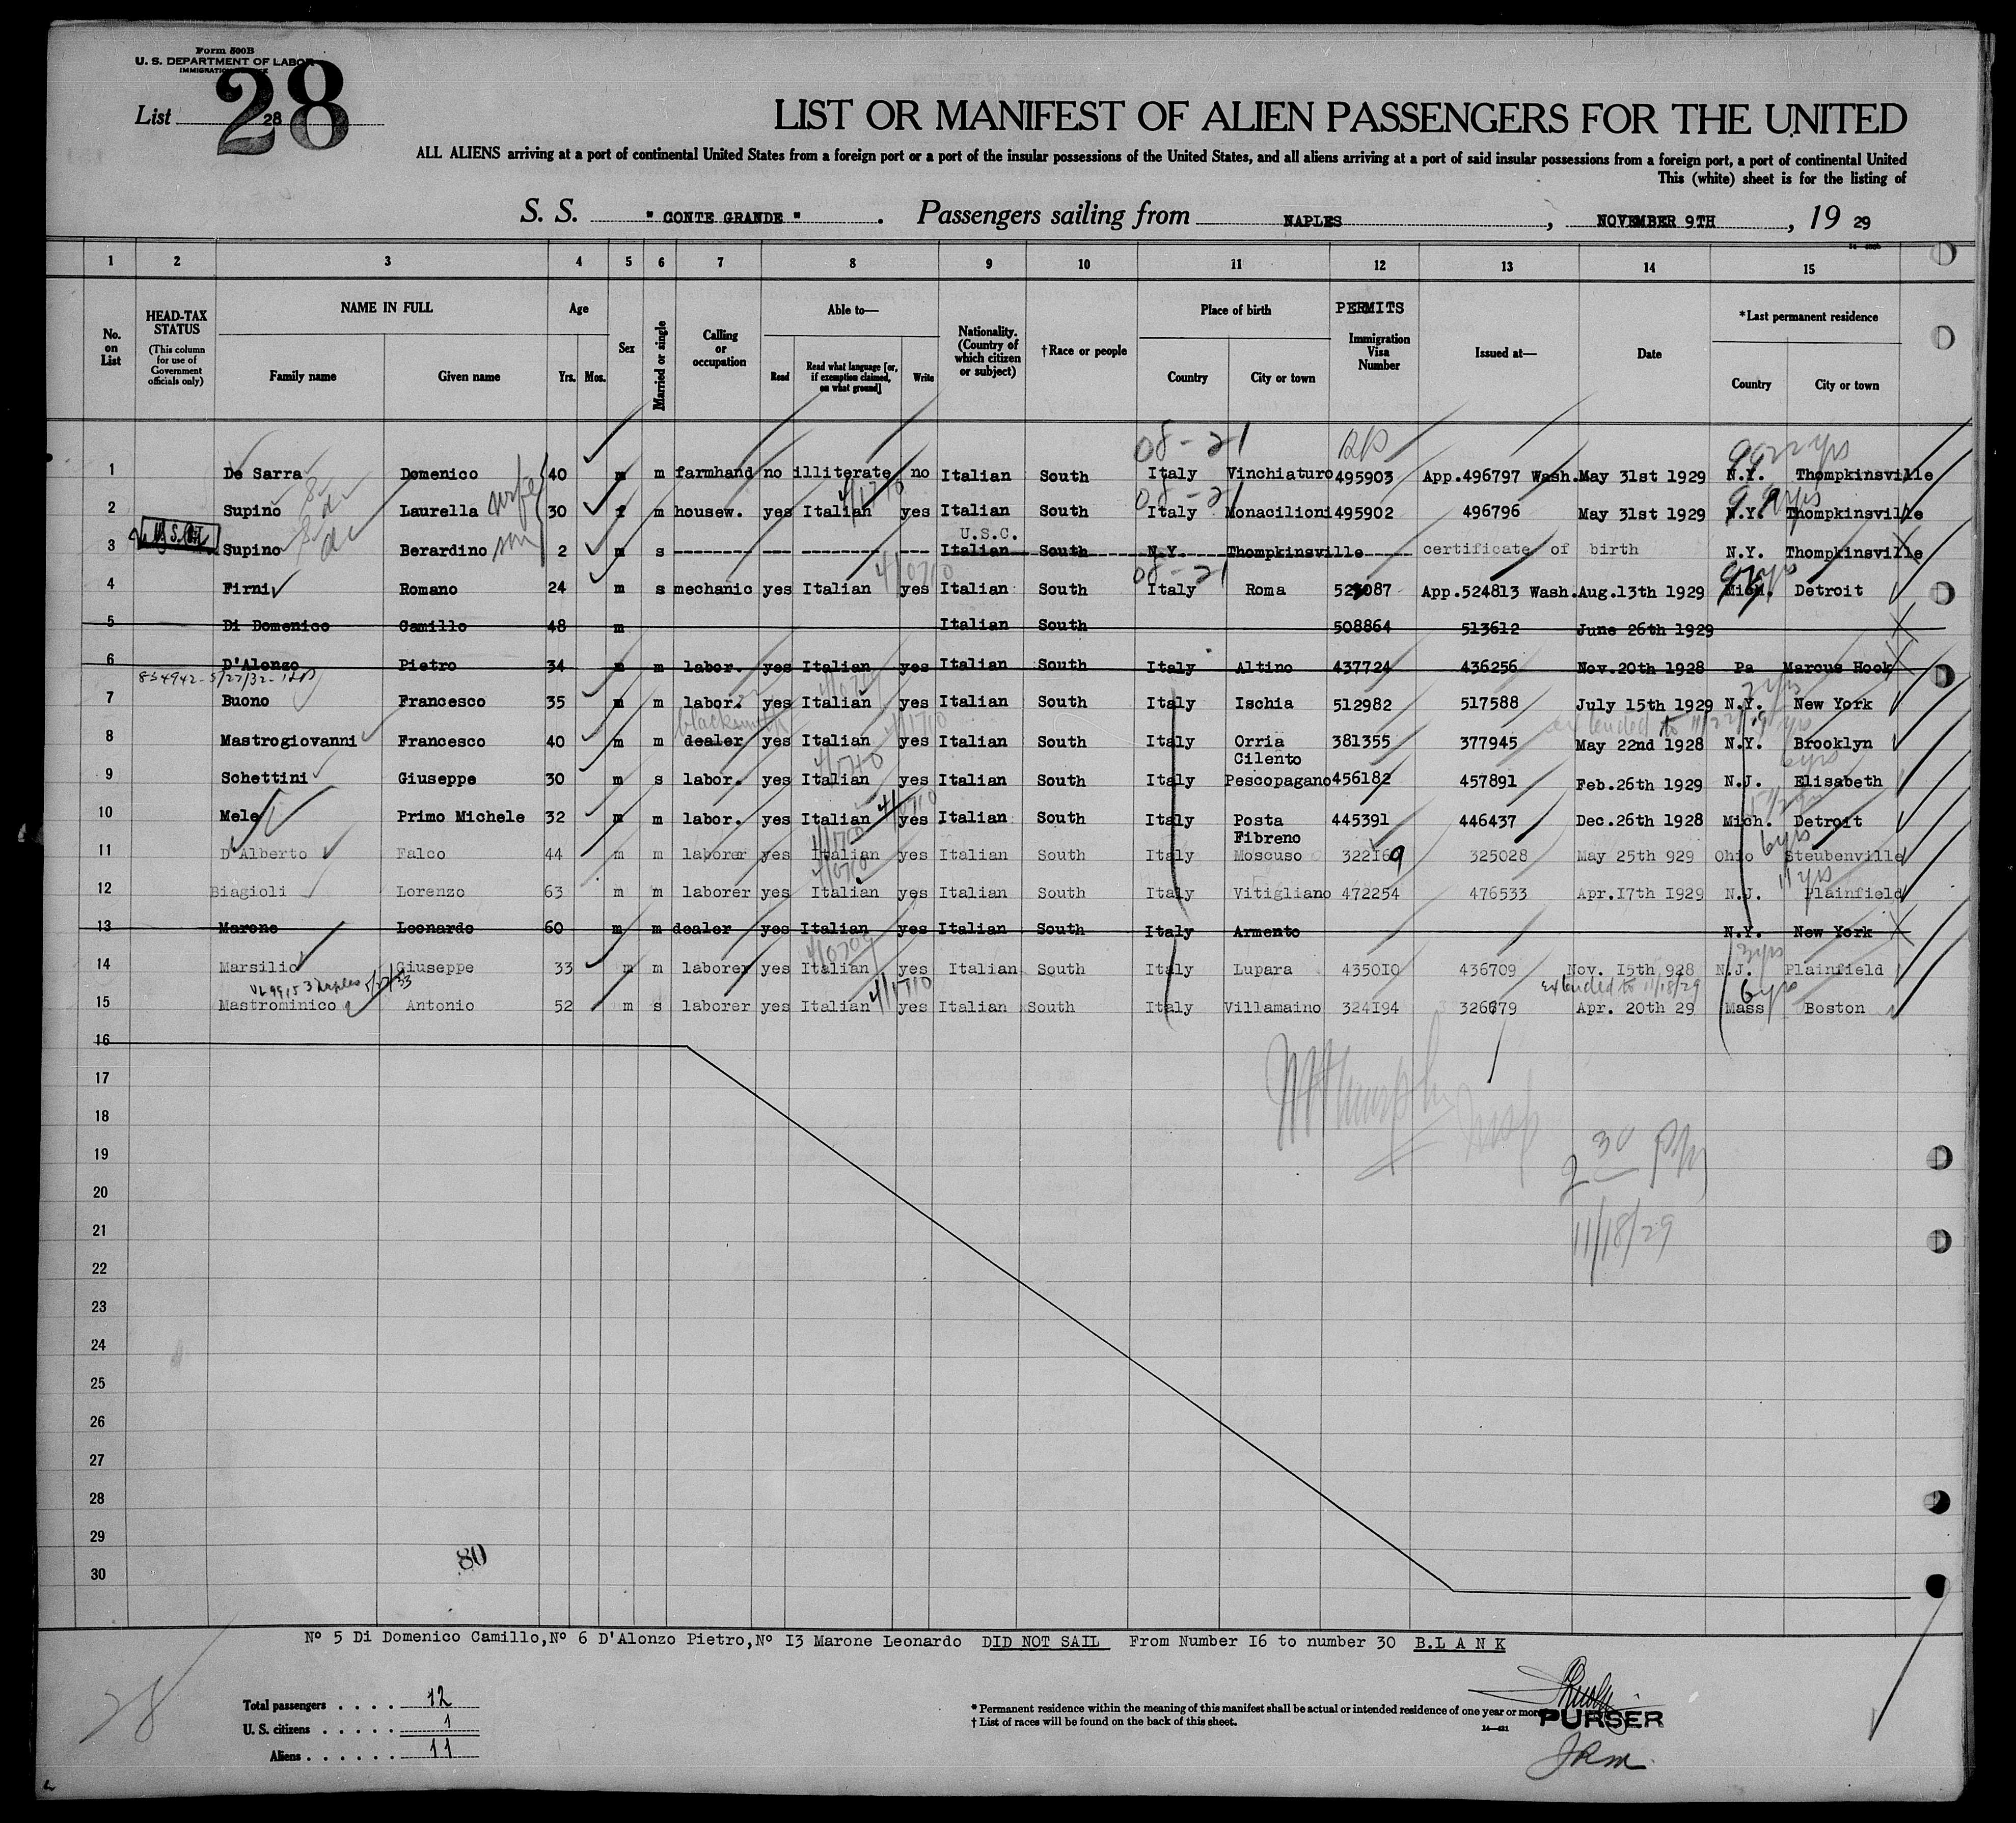 Form 500B
U. S. DEPARTMENT OF LABOR
IMMIGRATION SERVICE
List 28
28
LIST OR MANIFEST OF ALIEN PASSENGERS FOR THE UNITED
ALL ALIENS arriving at a port of continental United States from a foreign port or a port of the insular possessions of the United States, and all aliens arriving at a port of said insular possessions from a foreign port, a port of continental United
This (white) sheet is for the listing of
S. S. " CONTE GRANDE ". Passengers sailing from NAPLES, NOVEMBER 9TH, 19 29
1 2 3 4 5 6 7 8 9 10 11 12 13 14 15
No. on List
HEAD-TAX STATUS (This column for use of Government officials only)
NAME IN FULL Family name Given name
Age Yrs. Mos.
Sex
Married or single
Calling or occupation
Able to— Read Read what language [or, if exemption claimed, on what ground] Write
Nationality. (Country of which citizen or subject)
†Race or people
Place of birth Country City or town
PERMITS Immigration Visa Number
Issued at—
Date
*Last permanent residence Country City or town
08-21 22 yrs
1 De Sarra Domenico 40 m m farmhand no illiterate no Italian South Italy Vinchiaturo 495903 App.496797 Wash. May 31st 1929 N.Y. Thompkinsville
08-21
2 Supino Laurella wife 30 f m housew. yes Italian yes Italian South Italy Monacilioni 495902 496796 May 31st 1929 N.Y. Thompkinsville
U.S.C.
3 Supino Berardino son 2 m s Italian South N.Y. Thompkinsville certificate of birth N.Y. Thompkinsville
08-21
4 Firni Romano 24 m s mechanic yes Italian yes Italian South Italy Roma 52 087 App.524813 Wash. Aug.13th 1929 Mich. Detroit
5 Di Domenico Camillo 48 m Italian South 508864 513612 June 26th 1929
6 D'Alonzo Pietro 34 m m labor. yes Italian yes Italian South Italy Altino 437724 436256 Nov.20th 1928 Pa Marcus Hook
854942-5/27/32-
7 Buono Francesco 35 m m labor. yes Italian yes Italian South Italy Ischia 512982 517588 July 15th 1929 N.Y. New York
blacksmith extended to 11/22/29
8 Mastrogiovanni Francesco 40 m m dealer yes Italian yes Italian South Italy Orria Cilento 381355 377945 May 22nd 1928 N.Y. Brooklyn
6 yrs
9 Schettini Giuseppe 30 m s labor. yes Italian yes Italian South Italy Pescopagano 456182 457891 Feb.26th 1929 N.J. Elisabeth
10 Mele Primo Michele 32 m m labor. yes Italian yes Italian South Italy Posta Fibreno 445391 446437 Dec.26th 1928 Mich. Detroit
6 yrs
11 D'Alberto Falco 44 m m laborer yes Italian yes Italian South Italy Moscuso 322169 325028 May 25th 929 Ohio Steubenville
11 yrs
12 Biagioli Lorenzo 63 m m laborer yes Italian yes Italian South Italy Vitigliano 472254 476533 Apr.17th 1929 N.J. Plainfield
13 Marone Leonardo 60 m m dealer yes Italian yes Italian South Italy Armento N.Y. New York
14 Marsilio Giuseppe 33 m m laborer yes Italian yes Italian South Italy Lupara 435010 436709 Nov. 15th 928 N.J. Plainfield
extended to 11/18/29 6 yrs
15 Mastrominico Antonio 52 m s laborer yes Italian yes Italian South Italy Villamaino 324194 326679 Apr. 20th 29 Mass Boston
16
17
18
19
20
21
22
23
24
25
26
27
28
29
30
2 30 PM
11/18/29
80
Nº 5 Di Domenico Camillo,Nº 6 D'Alonzo Pietro,Nº 13 Marone Leonardo DID NOT SAIL From Number 16 to number 30 B.L A N K
28
Total passengers . . . . 12
U. S. citizens . . . . . 1
Aliens . . . . . . 11
* Permanent residence within the meaning of this manifest shall be actual or intended residence of one year or more.
† List of races will be found on the back of this sheet.
PURSER
JRM.